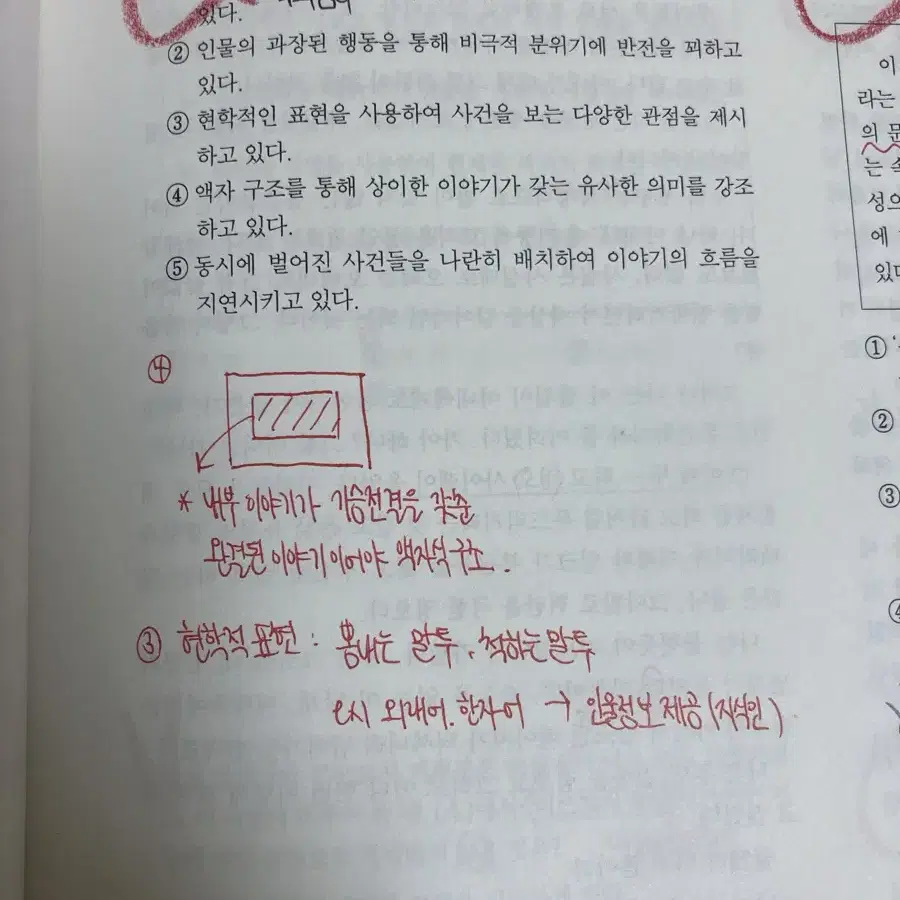 있다.
② 인물의 과장된 행동을 통해 비극적 분위기에 반전을 꾀하고
있다.
③ 현학적인 표현을 사용하여 사건을 보는 다양한 관점을 제시
하고 있다.
④ 액자 구조를 통해 상이한 이야기가 갖는 유사한 의미를 강조
하고 있다.
⑤ 동시에 벌어진 사건들을 나란히 배치하여 이야기의 흐름을
지연시키고 있다.
④
* 내부 이야기가 기승전결을 갖춘
완결된 이야기이어야 액자식 구조.
③ 현학적 표현 : 뽐내는 말투, 척하는 말투
예시 외래어. 한자어 → 인물정보 제공 (지식인)
이
라는
의 문
는 속
성으
에
있다
①
②
③
④